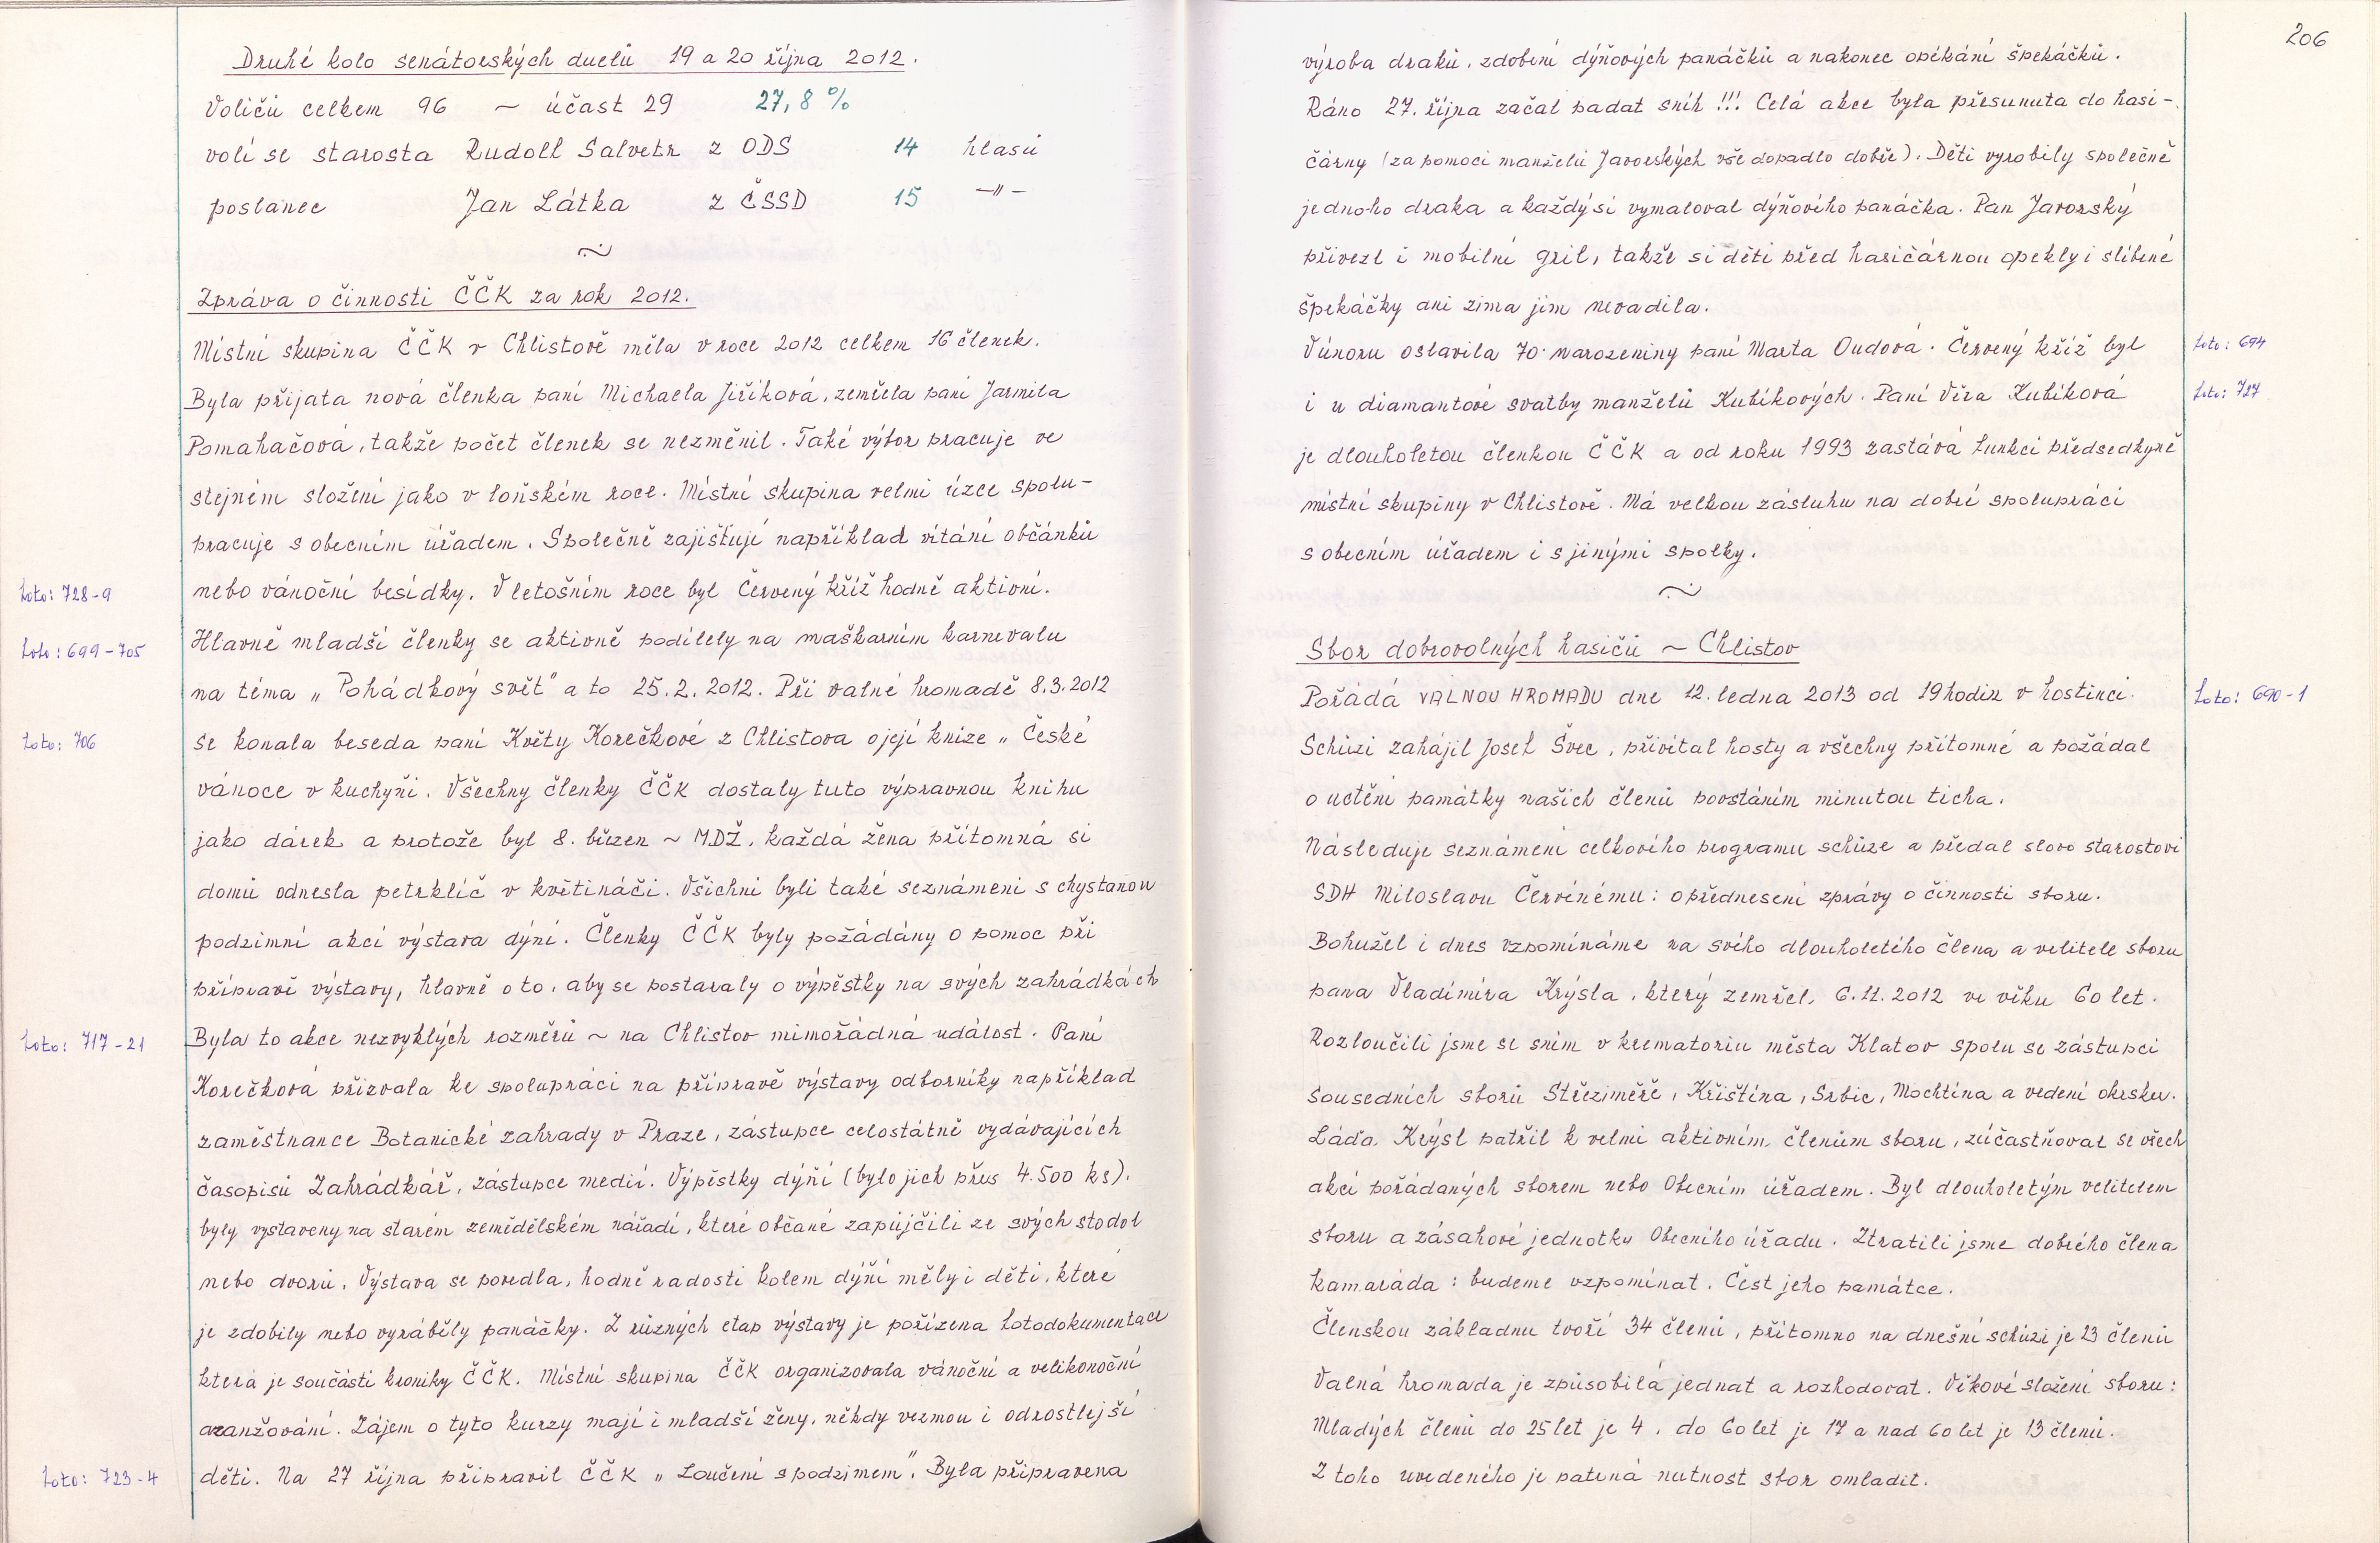 Druhé kolo senátorských duelů 19 a 20 října 2012.
Voličů celkem 96 ~ účast 29 27,8 %
volí se starosta Rudolf Salvetr z ODS 14 hlasů
poslanec Jan Látka z ČSSD 15 —"—
~
Zpráva o činnosti ČČK za rok 2012.
Místní skupina ČČK v Chlistově měla v roce 2012 celkem 16 členek.
Byla přijata nová členka paní Michaela Jiříková, zemřela paní Jarmila
Pomahačová, takže počet členek se nezměnil. Také výbor pracuje ve
stejném složení jako v loňském roce. Místní skupina velmi úzce spolu-
pracuje s obecním úřadem. Společně zajišťují například vítání občánků
foto: 728-9 nebo vánoční besídky. V letošním roce byl Červený kříž hodně aktivní.
foto: 699-705 Hlavně mladší členky se aktivně podílely na maškarním karnevalu
na téma „Pohádkový svět" a to 25.2.2012. Při valné hromadě 8.3.2012
foto: 706 se konala beseda paní Květy Korečkové z Chlistova o její knize „České
vánoce v kuchyni. Všechny členky ČČK dostaly tuto výpravnou knihu
jako dárek a protože byl 8. březen ~ MDŽ, každá žena přítomná si
domů odnesla petrklíč v květináči. Všichni byli také seznámeni s chystanou
podzimní akcí výstava dýní. Členky ČČK byly požádány o pomoc při
přípravě výstavy, hlavně o to, aby se postaraly o výpěstky na svých zahrádkách
foto: 717-21 Byla to akce nezvyklých rozměrů ~ na Chlistov mimořádná událost. Paní
Korečková přizvala ke spolupráci na přípravě výstavy odborníky například
zaměstnance Botanické zahrady v Praze, zástupce celostátně vydávajících
časopisů Zahrádkář, zástupce medií. Výpěstky dýní (bylo jich přes 4.500 ks).
byly vystaveny na starém zemědělském nářadí, které občané zapůjčili ze svých stodol
nebo dvorů. Výstava se povedla, hodně radosti kolem dýní měly i děti, které
je zdobily nebo vyráběly panáčky. Z různých etap výstavy je pořízena fotodokumentace
která je součástí kroniky ČČK. Místní skupina ČČK organizovala vánoční a velikonoční
aranžování. Zájem o tyto kurzy mají i mladší ženy, někdy vezmou i odrostlejší
foto: 723-4 děti. Na 27 října připravil ČČK „Loučení s podzimem". Byla připravena
206
výroba draků, zdobení dýňových panáčků a nakonec opékání špekáčků.
Ráno 27. října začal padat sníh !!! Celá akce byla přesunuta do hasi-
čárny (za pomoci manželů Javorských vše dopadlo dobře). Děti vyrobily společně
jednoho draka a každý si vymaloval dýňového panáčka. Pan Javorský
přivezl i mobilní gril, takže si děti před hasičárnou opekly i slíbené
špekáčky ani zima jim nevadila.
V únoru oslavila 70. narozeniny paní Marta Oudová. Červený kříž byl foto: 694
i u diamantové svatby manželů Kubíkových. Paní Věra Kubíková foto: 727
je dlouholetou členkou ČČK a od roku 1993 zastává funkci předsedkyně
místní skupiny v Chlistově. Má velkou zásluhu na dobré spolupráci
s obecním úřadem i s jinými spolky.
~
Sbor dobrovolných hasičů ~ Chlistov
Pořádá VALNOU HROMADU dne 12. ledna 2013 od 19 hodin v hostinci. foto: 690-1
Schůzi zahájil Josef Švec, přivítal hosty a všechny přítomné a požádal
o uctění památky našich členů povstáním minutou ticha.
Následuje seznámení celkového programu schůze a předal slovo starostovi
SDH Miloslavu Červínému: o přednesení zprávy o činnosti sboru.
Bohužel i dnes vzpomínáme na svého dlouholetého člena a velitele sboru
pana Vladimíra Krýsla, který zemřel, 6.11.2012 ve věku 60 let.
Rozloučili jsme se sním v krematoriu města Klatov spolu se zástupci
sousedních sborů Střeziměře, Křištína, Srbic, Mochtína a vedení okrsku.
Láďa Krýsl patřil k velmi aktivním členům sboru, zúčastňoval se všech
akcí pořádaných sborem nebo Obecním úřadem. Byl dlouholetým velitelem
sboru a zásahové jednotky Obecního úřadu. Ztratili jsme dobrého člena
kamaráda: budeme vzpomínat. Čest jeho památce.
Členskou základnu tvoří 34 členů, přítomno na dnešní schůzi je 23 členů
Valná hromada je způsobilá jednat a rozhodovat. Věkové složení sboru:
Mladých členů do 25 let je 4, do 60 let je 17 a nad 60 let je 13 členů.
Z toho uvedeného je patrná nutnost sbor omladit.